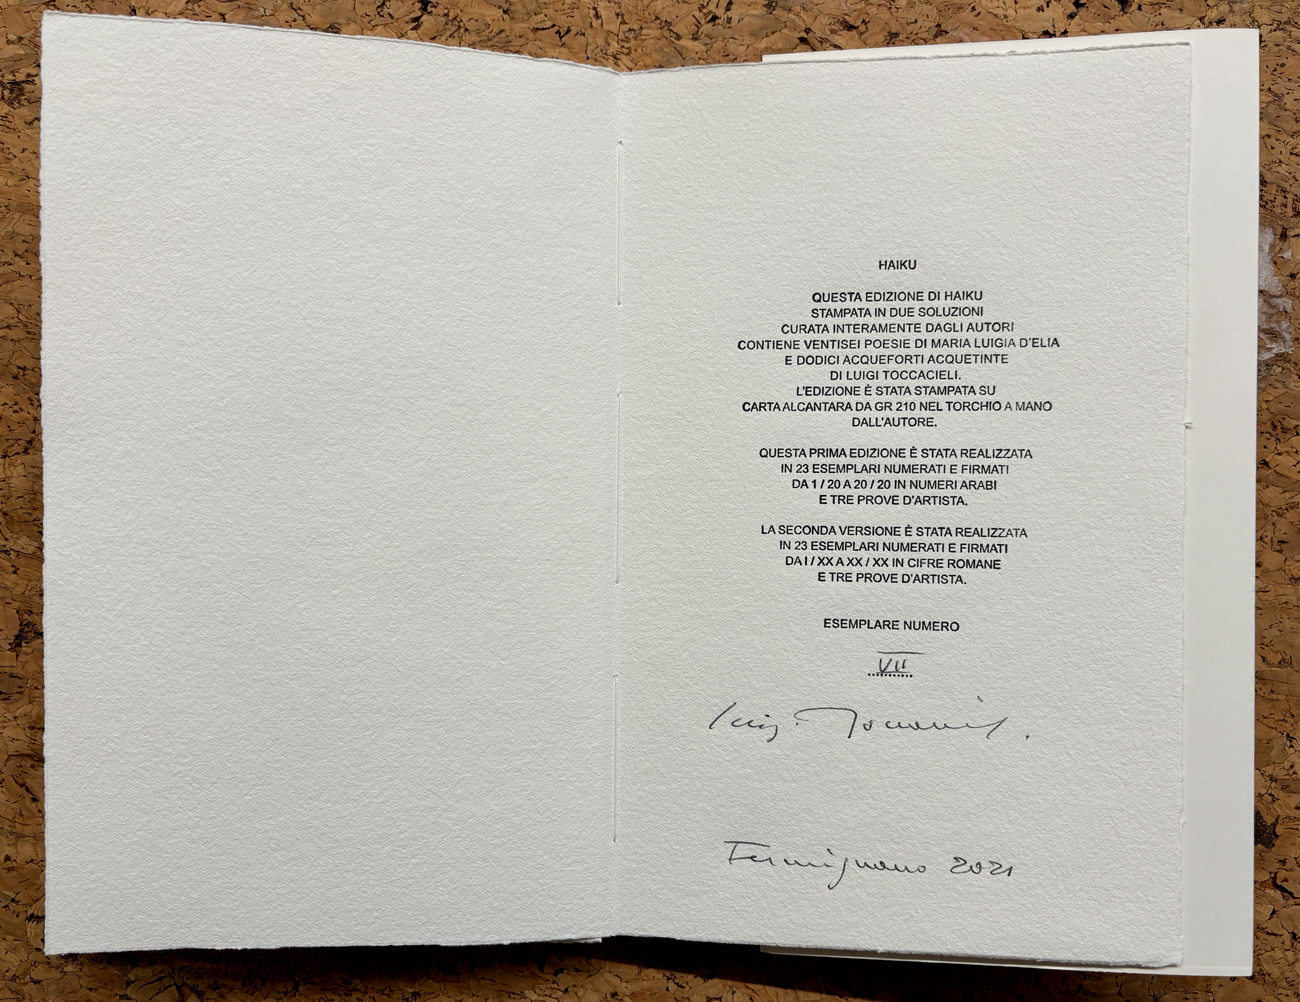 HAIKU
QUESTA EDIZIONE DI HAIKU
STAMPATA IN DUE SOLUZIONI
CURATA INTERAMENTE DAGLI AUTORI
CONTIENE VENTISEI POESIE DI MARIA LUIGIA D'ELIA
E DODICI ACQUEFORTI ACQUETINTE
DI LUIGI TOCCACIELI.
L'EDIZIONE È STATA STAMPATA SU
CARTA ALCANTARA DA GR 210 NEL TORCHIO A MANO
DALL'AUTORE.
QUESTA PRIMA EDIZIONE È STATA REALIZZATA
IN 23 ESEMPLARI NUMERATI E FIRMATI
DA 1 / 20 A 20 / 20 IN NUMERI ARABI
E TRE PROVE D'ARTISTA.
LA SECONDA VERSIONE È STATA REALIZZATA
IN 23 ESEMPLARI NUMERATI E FIRMATI
DA I / XX A XX / XX IN CIFRE ROMANE
E TRE PROVE D'ARTISTA.
ESEMPLARE NUMERO
VII
Luigi
Fermignano 2021